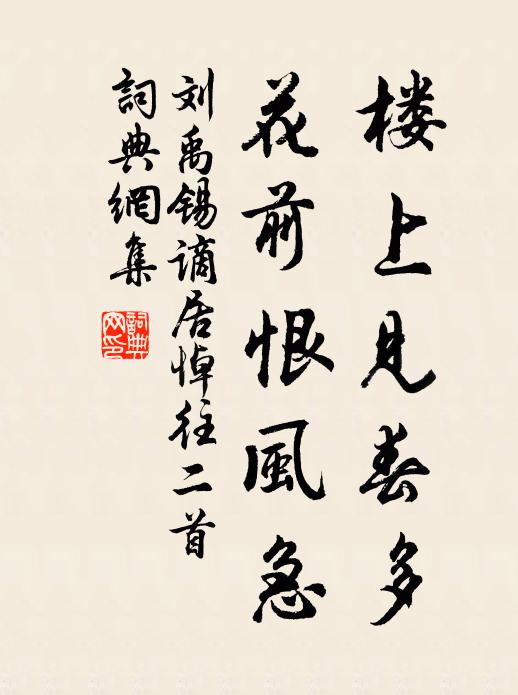 楼上见春多
花前恨風急
刘禹锡谪居悼往二首
詞典網集
詞典網印